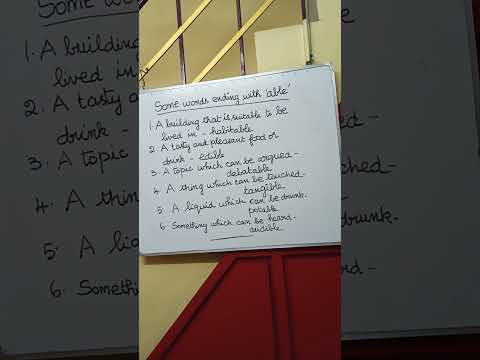 Some words ending with 'able'
1. A building that is suitable to be
lived in - habitable
2. A tasty and pleasant food or
drink - edible
3. A topic which can be argued -
debatable
4. A thing which can be touched -
tangible
5. A liquid which can be drunk -
potable
6. Something which can be heard -
audible